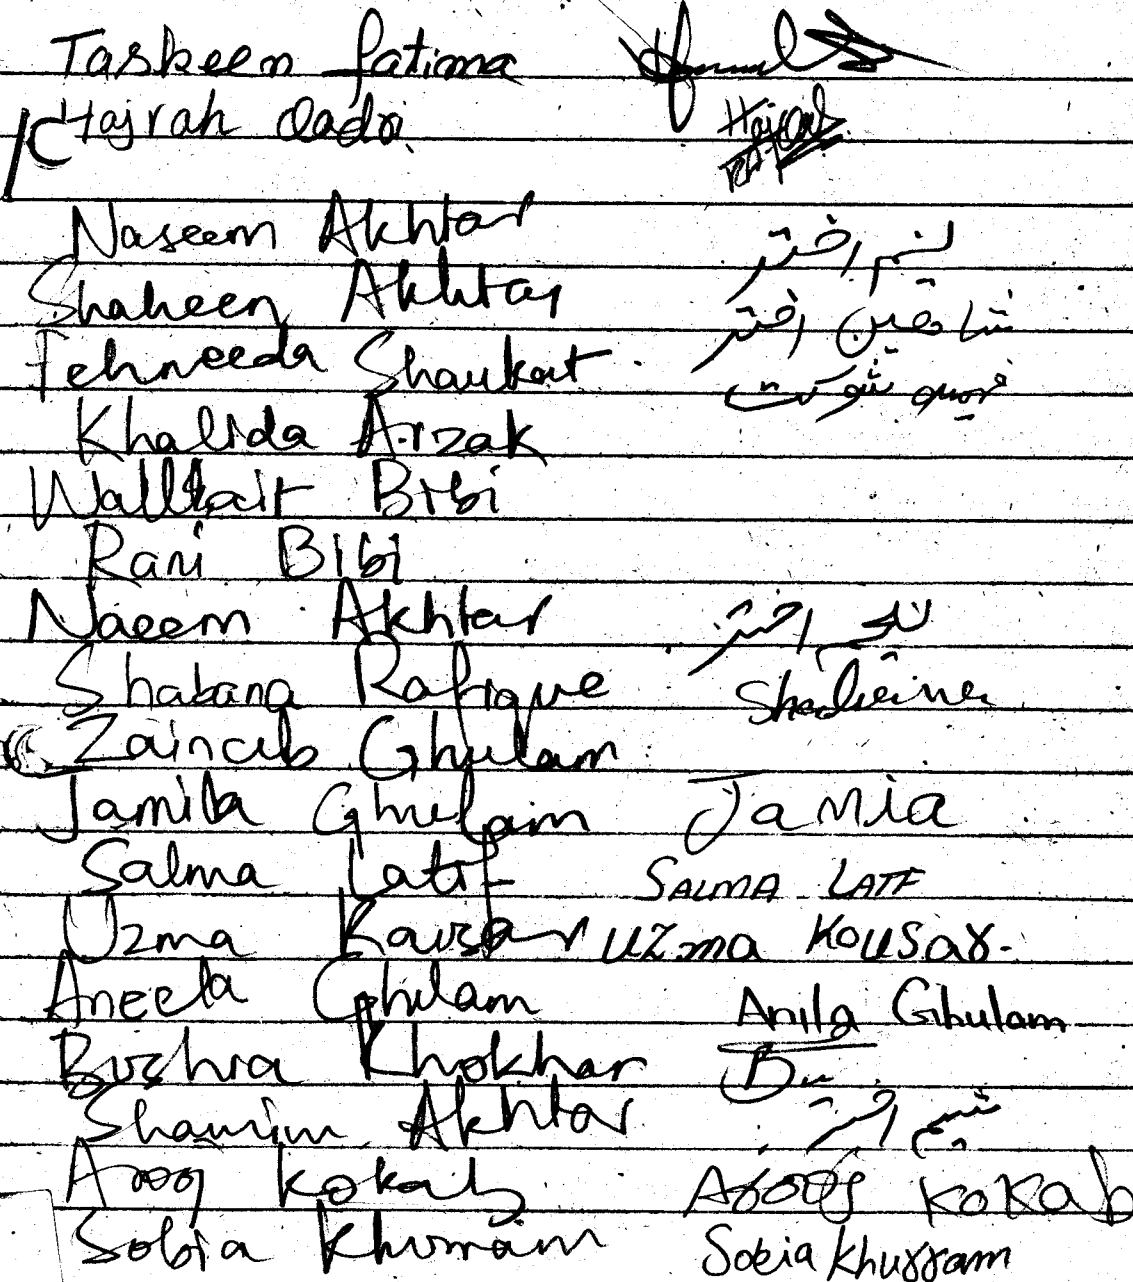 Taskeen fatima
Hajrah Qadri
Naseem Akhtar نسیم اختر
Shaheen Akhtar شاھین اختر
Fehmeeda Shaukat شوکت
Khalida A.rzak
Bibi
Rani Bibi
Naeem Akhtar نعیم اختر
Shabana Rafique
Zainab Ghulam
Jamila Ghulam Jamia
Salma Latif SALMA LATF
Uzma Kausar UZma KOUSAr.
Aneela Ghulam Anila Ghulam
Bushra Khokhar
Shamim Akhtar شمیم اختر
Arooj Kokab Arooj KOKAb
Sobia Khurram Sobia Khurram